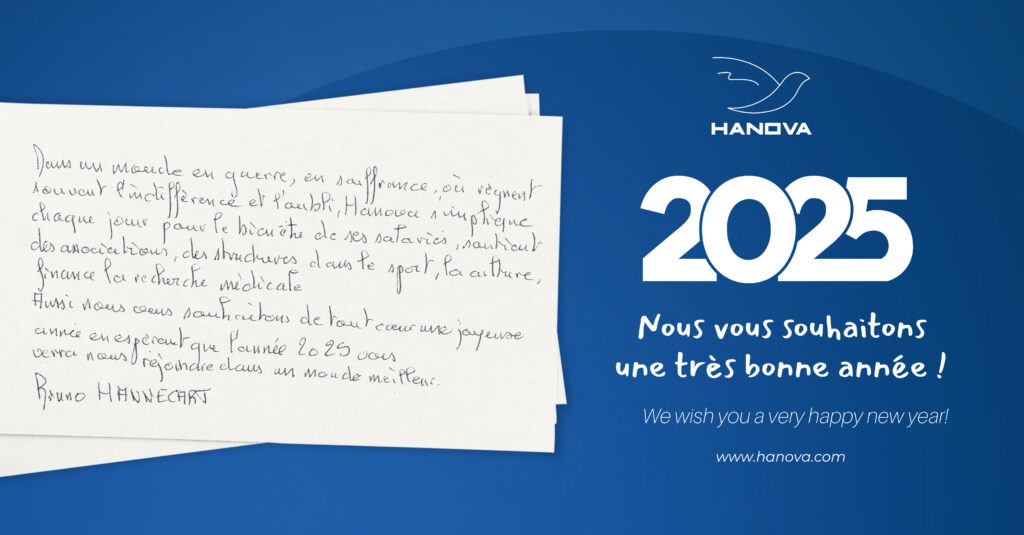 Dans un monde en guerre, en souffrance, où règnent
souvent l'indifférence et l'oubli, Hanova s'implique
chaque jour pour le bien être de ses salariés, soutient
des associations, des structures dans le sport, la culture,
finance la recherche médicale
Aussi nous vous souhaitons de tout cœur une joyeuse
année en espérant que l'année 2025 vous
verra nous rejoindre dans un monde meilleur.
Bruno HANNECART
HANOVA
2025
Nous vous souhaitons
une très bonne année !
We wish you a very happy new year!
www.hanova.com